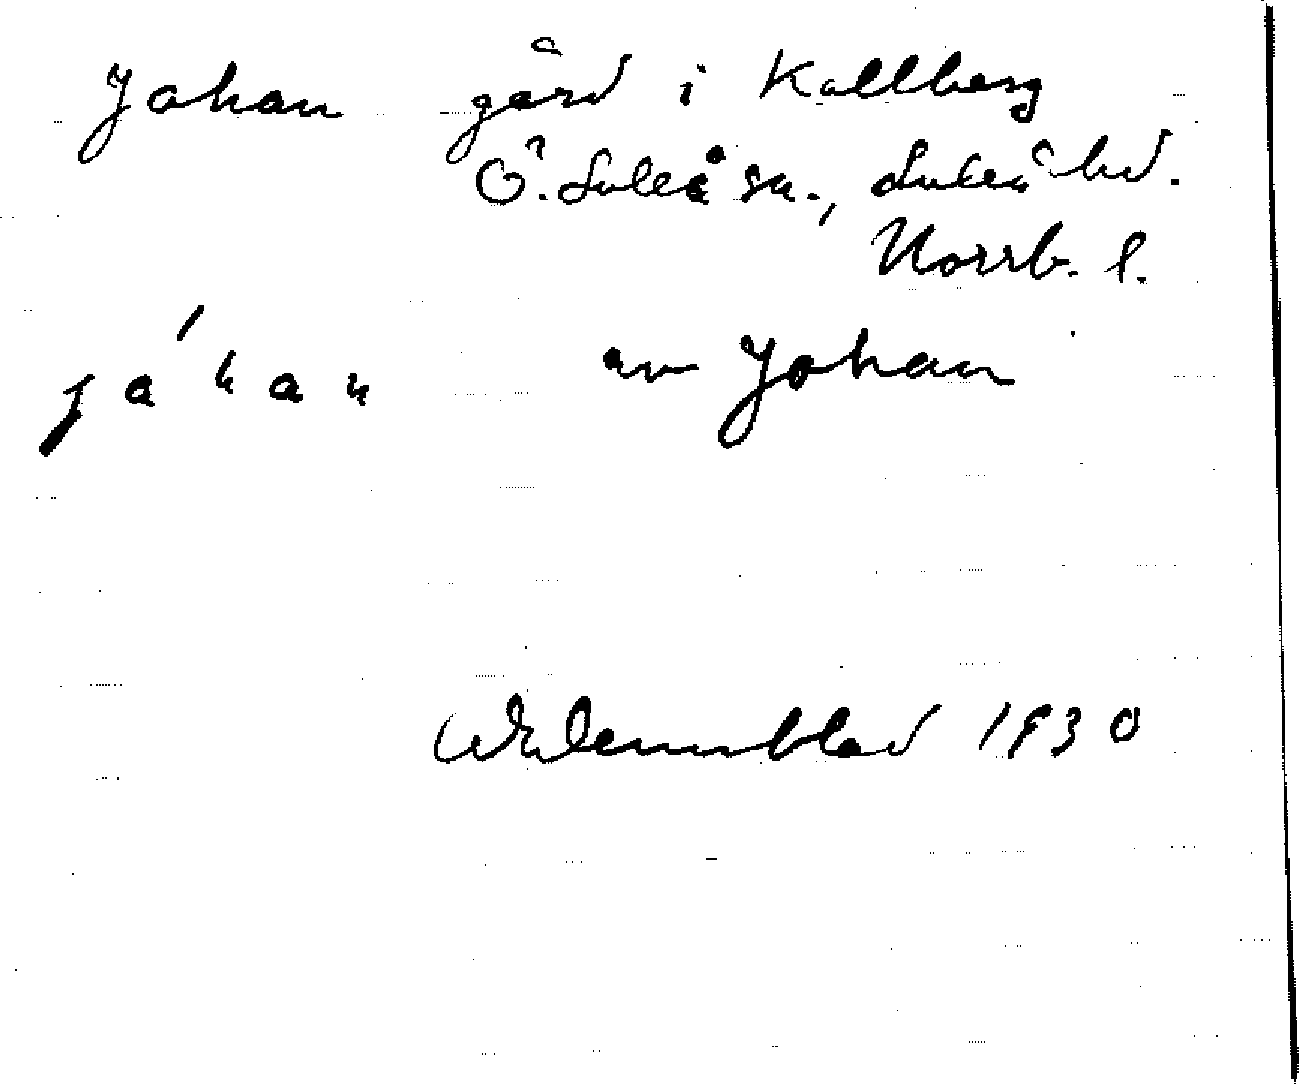 Johan gård i Kallberg
Ö. Luleå sn., Luleå hd.
Norrb. l.
jáhan av Johan
Wennblad 1930